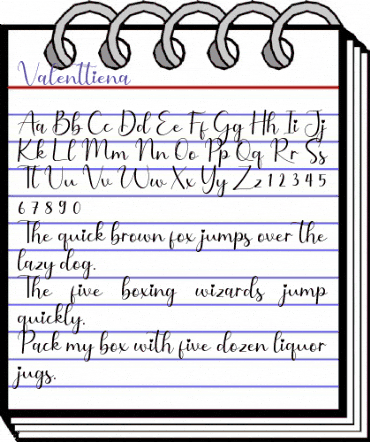 Valenttiena
Aa Bb Cc Dd Ee Ff Gg Hh Ii Jj
Kk Ll Mm Nn Oo Pp Qq Rr Ss
Tt Uu Vv Ww Xx Yy Zz 1 2 3 4 5
6 7 8 9 0
The quick brown fox jumps over the
lazy dog.
The five boxing wizards jump
quickly.
Pack my box with five dozen liquor
jugs.